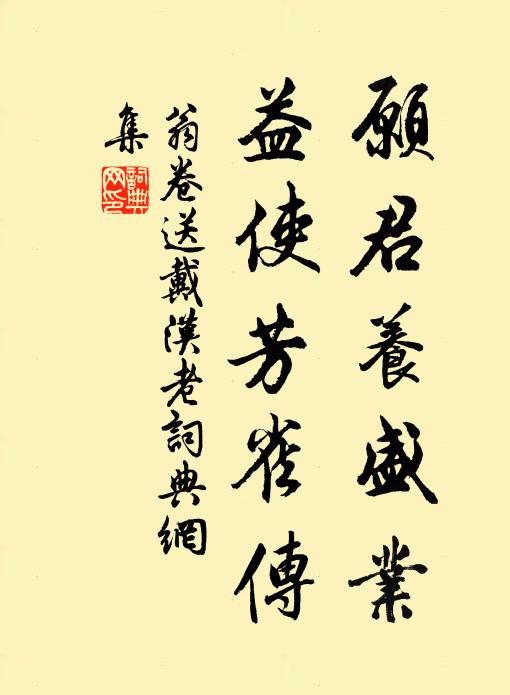 願君養盛業
益使芳傳
翁卷送戴漢老詞典網
集
詞典網印